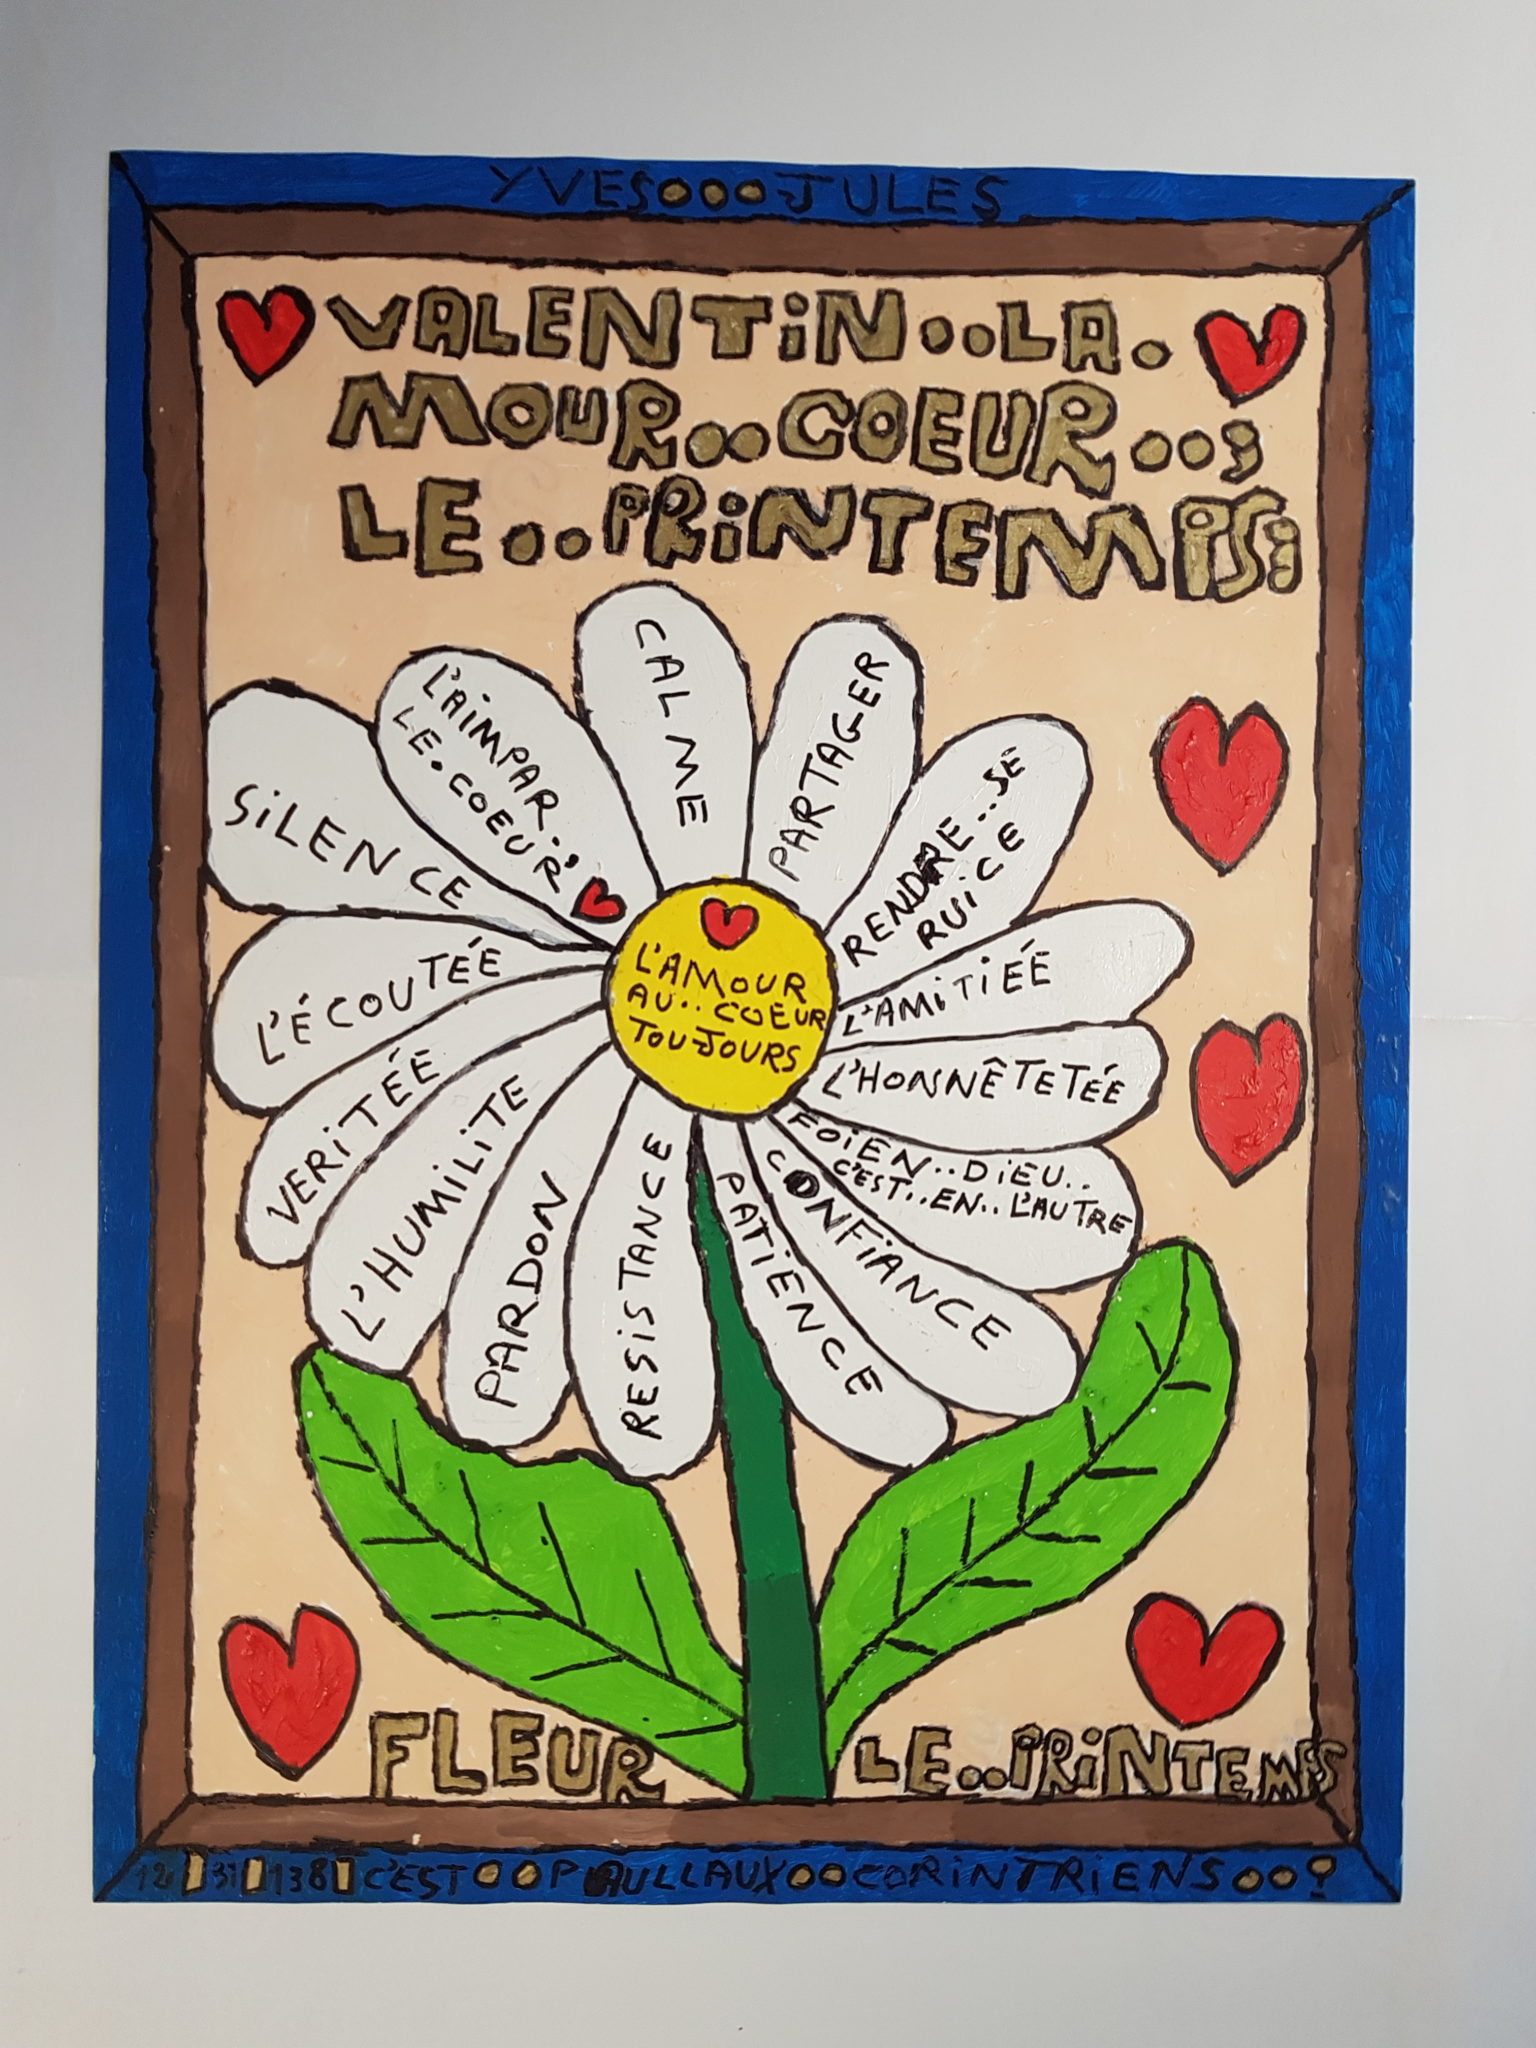 YVES...JULES
VALENTIN..LA.
MOUR..COEUR..;
LE..PRINTEMPS;
CALME
PARTAGER
RENDRE..SE
RUICE
L'AMITIEÉ
L'HONNÊTETÉE
FOIEN..DIEU..
C'EST..EN..L'AUTRE
CONFIANCE
PATIENCE
RESISTANCE
PARDON
L'HUMILITE
VERITÉE
L'ÉCOUTÉE
SILENCE
L'AIMPAR.
LE.COEUR'
L'AMOUR
AU..COEUR
TOUJOURS
FLEUR
LE..PRINTEMPS
C'EST..PAULLAUX..CORINTRIENS..